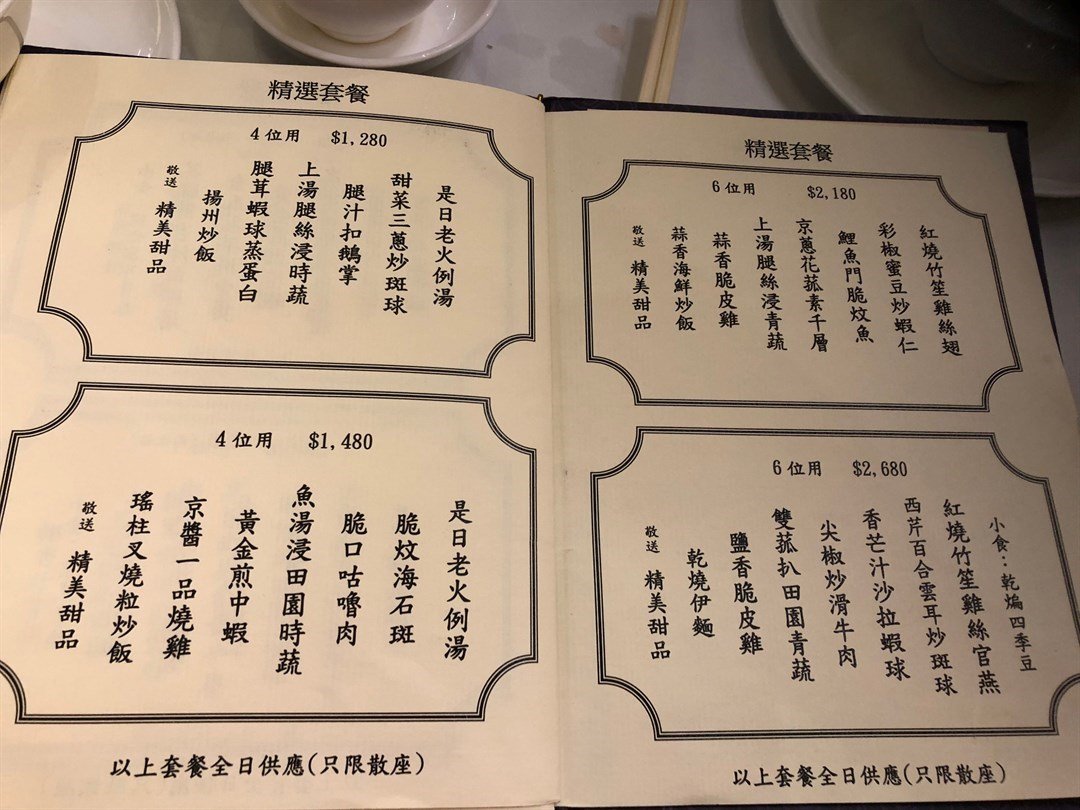 精選套餐
4位用 $1,280
是日老火例湯
甜菜三蔥炒斑球
腿汁扣鵝掌
上湯腿絲浸時蔬
腿茸蝦球蒸蛋白
揚州炒飯
敬送 精美甜品
4位用 $1,480
是日老火例湯
脆炆海石斑
脆口咕嚕肉
魚湯浸田園時蔬
黃金煎中蝦
京醬一品燒雞
瑤柱叉燒粒炒飯
敬送 精美甜品
以上套餐全日供應(只限散座)
精選套餐
6位用 $2,180
紅燒竹笙雞絲翅
彩椒蜜豆炒蝦仁
鯉魚門脆炆魚
京蔥花菰素千層
上湯腿絲浸青蔬
蒜香脆皮雞
蒜香海鮮炒飯
敬送 精美甜品
6位用 $2,680
小食：乾煸四季豆
紅燒竹笙雞絲官燕
西芹百合雲耳炒斑球
香芒汁沙拉蝦球
尖椒炒滑牛肉
雙菰扒田園青蔬
鹽香脆皮雞
乾燒伊麵
敬送 精美甜品
以上套餐全日供應(只限散座)